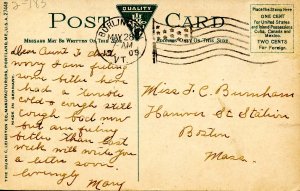 2-785
POST CARD
QUALITY
BURLINGTON
MAY 28
AM
09
VT.
Place the Stamp Here
ONE CENT
For United States
and Island Possessions
Cuba, Canada and
Mexico
TWO CENTS
For Foreign
MAY BE WRITTEN ON
ON THIS SIDE
THE HUGH C. LEIGHTON CO., MANUFACTURERS, PORTLAND, ME., U.S.A.
Dear Aunt I am
sorry I am feeling
some better have
had a terrible
cold & cough still
cough bad now
but am feeling
better than last
week will write you
a letter soon.
Lovingly
Mary
Miss F. C. Burnham
Hanover St Station
Boston
Mass.